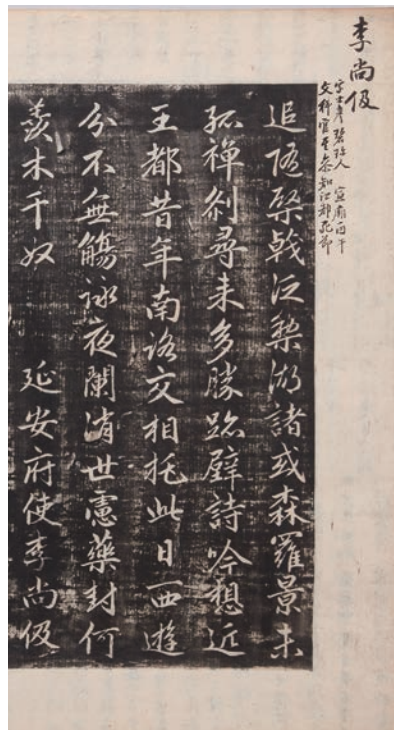 李尚伋
字士彦碧珍人 宣廟丙午
文科官至叅知江都死節
追隨棨戟泛棃湖諸或森羅景未
孤禪刹尋来多勝跡壁詩吟想近
王都昔年南洛交相托此日西遊
分不無觴詠夜闌消世慮藥封何
羨木千奴 延安府使李尚伋